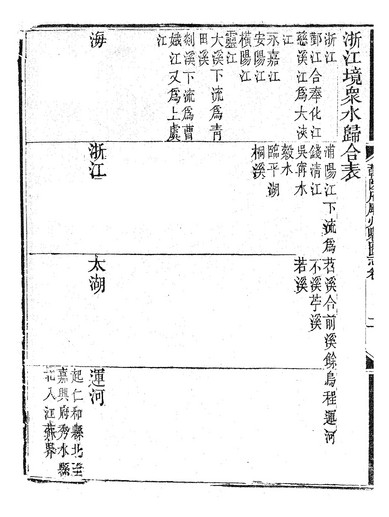 浙江境眾水歸合表
浙江
鄞江合奉化江
慈溪江爲大浹
江
永嘉江
安陽江
橫陽江
靈江
大溪下流爲青
田溪
剡溪下流爲曹
娥江又爲上虞
江
海
浦陽江下流爲
錢清江
吳甯水
榖水
臨平湖
桐溪
浙江
苕溪合前溪餘
不溪苧溪
若溪
太湖
烏程運河
運河
起仁和縣北至
嘉興府秀水縣
北入江蘇界
二